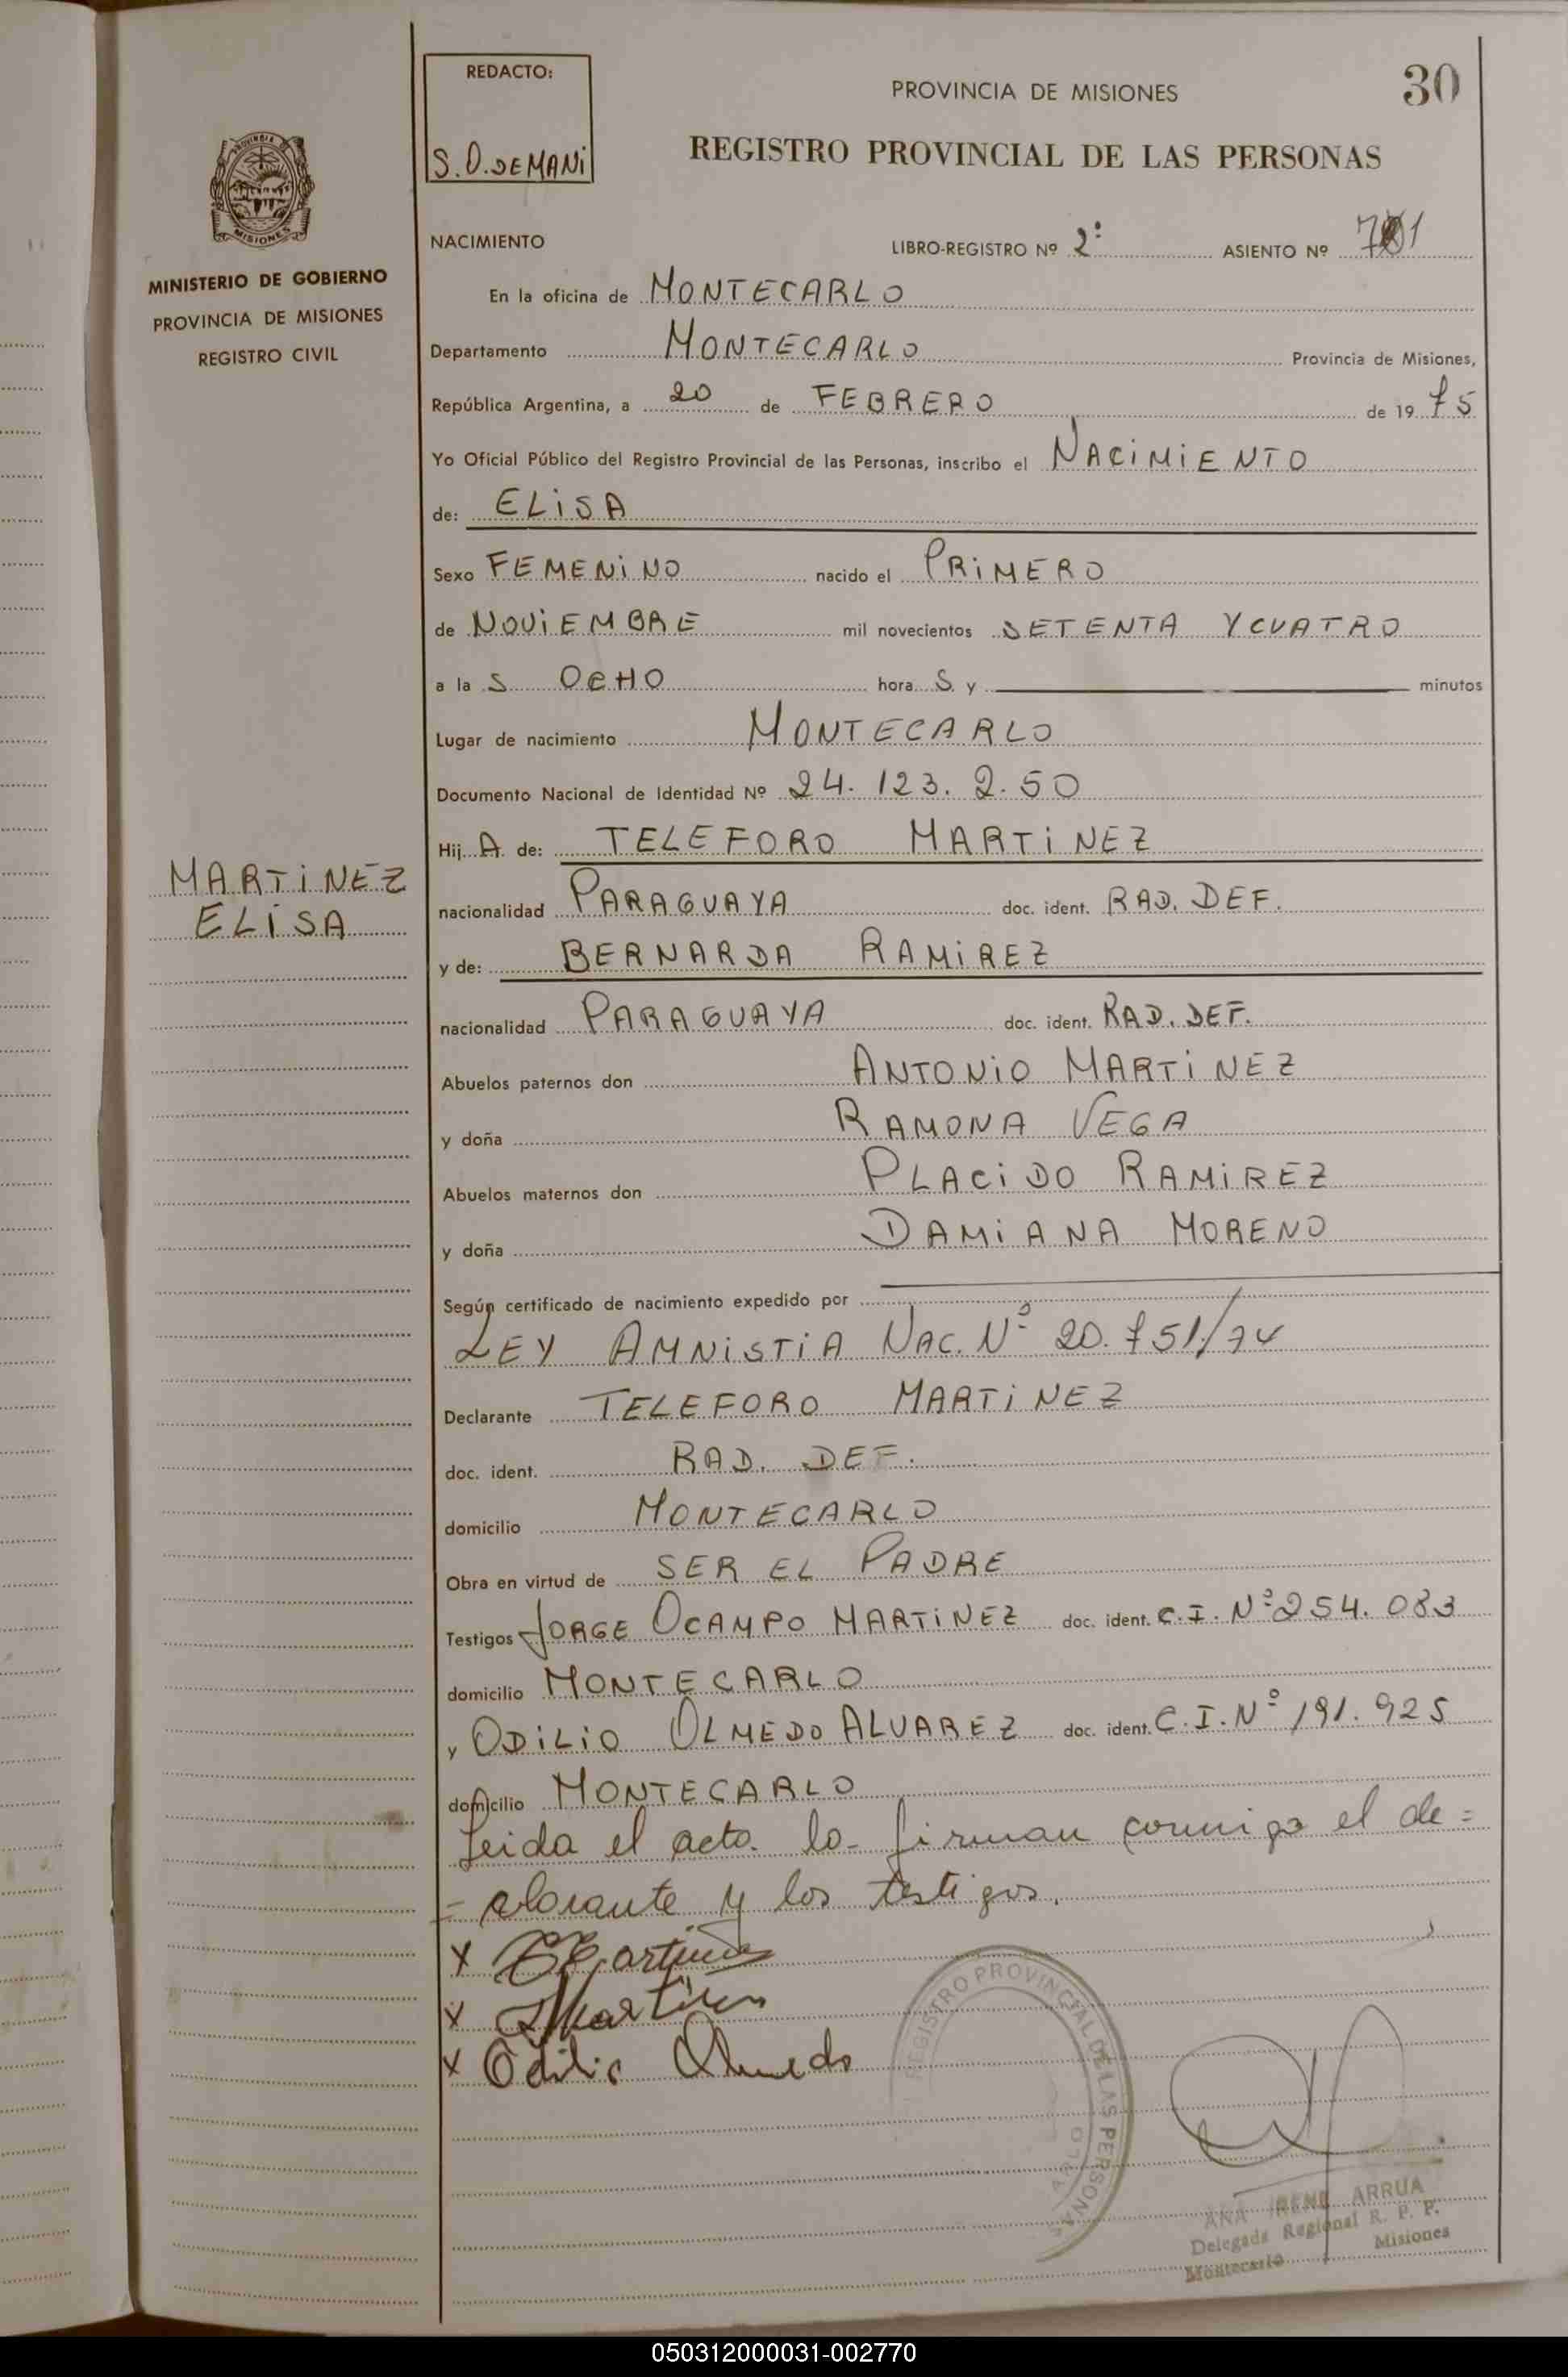 REDACTO:
S.O. DEMANI
PROVINCIA DE MISIONES
30
REGISTRO PROVINCIAL DE LAS PERSONAS
PROVINCIA DE
MISIONES
MINISTERIO DE GOBIERNO
PROVINCIA DE MISIONES
REGISTRO CIVIL
NACIMIENTO LIBRO-REGISTRO Nº 2º ASIENTO Nº
En la oficina de MONTECARLO
Departamento MONTECARLO Provincia de Misiones,
República Argentina, a 20 de FEBRERO de 19 75
Yo Oficial Público del Registro Provincial de las Personas, inscribo el NACIMIENTO
de: ELISA
Sexo FEMENINO nacido el PRIMERO
de NOVIEMBRE mil novecientos SETENTA Y CUATRO
a la S OCHO hora S y minutos
Lugar de nacimiento MONTECARLO
Documento Nacional de Identidad Nº 24. 123. 2.50
Hij A de: TELEFORO MARTINEZ
MARTINEZ
ELISA
nacionalidad PARAGUAYA doc. ident. RAD. DEF.
y de: BERNARDA RAMIREZ
nacionalidad PARAGUAYA doc. ident. RAD. DEF.
Abuelos paternos don ANTONIO MARTINEZ
y doña RAMONA VEGA
Abuelos maternos don PLACIDO RAMIREZ
y doña DAMIANA MORENO
Según certificado de nacimiento expedido por
LEY AMNISTIA NAC. Nº 20.751/74
Declarante TELEFORO MARTINEZ
doc. ident. RAD. DEF.
domicilio MONTECARLO
Obra en virtud de SER EL PADRE
Testigos JORGE OCAMPO MARTINEZ doc. ident. C.I. Nº 254.083
domicilio MONTECARLO
y ODILIO OLMEDO ALVAREZ doc. ident. C.I. Nº 191.925
domicilio MONTECARLO
Leida el acta lo firman conmigo el de=
=clarante y los testigos.
X
X
X Odilio Olmedo
REGISTRO PROVINCIAL DE LAS PERSONAS
ANA IRENE ARRUA
Delegada Regional R. P. P.
Montecarlo Misiones
050312000031-002770